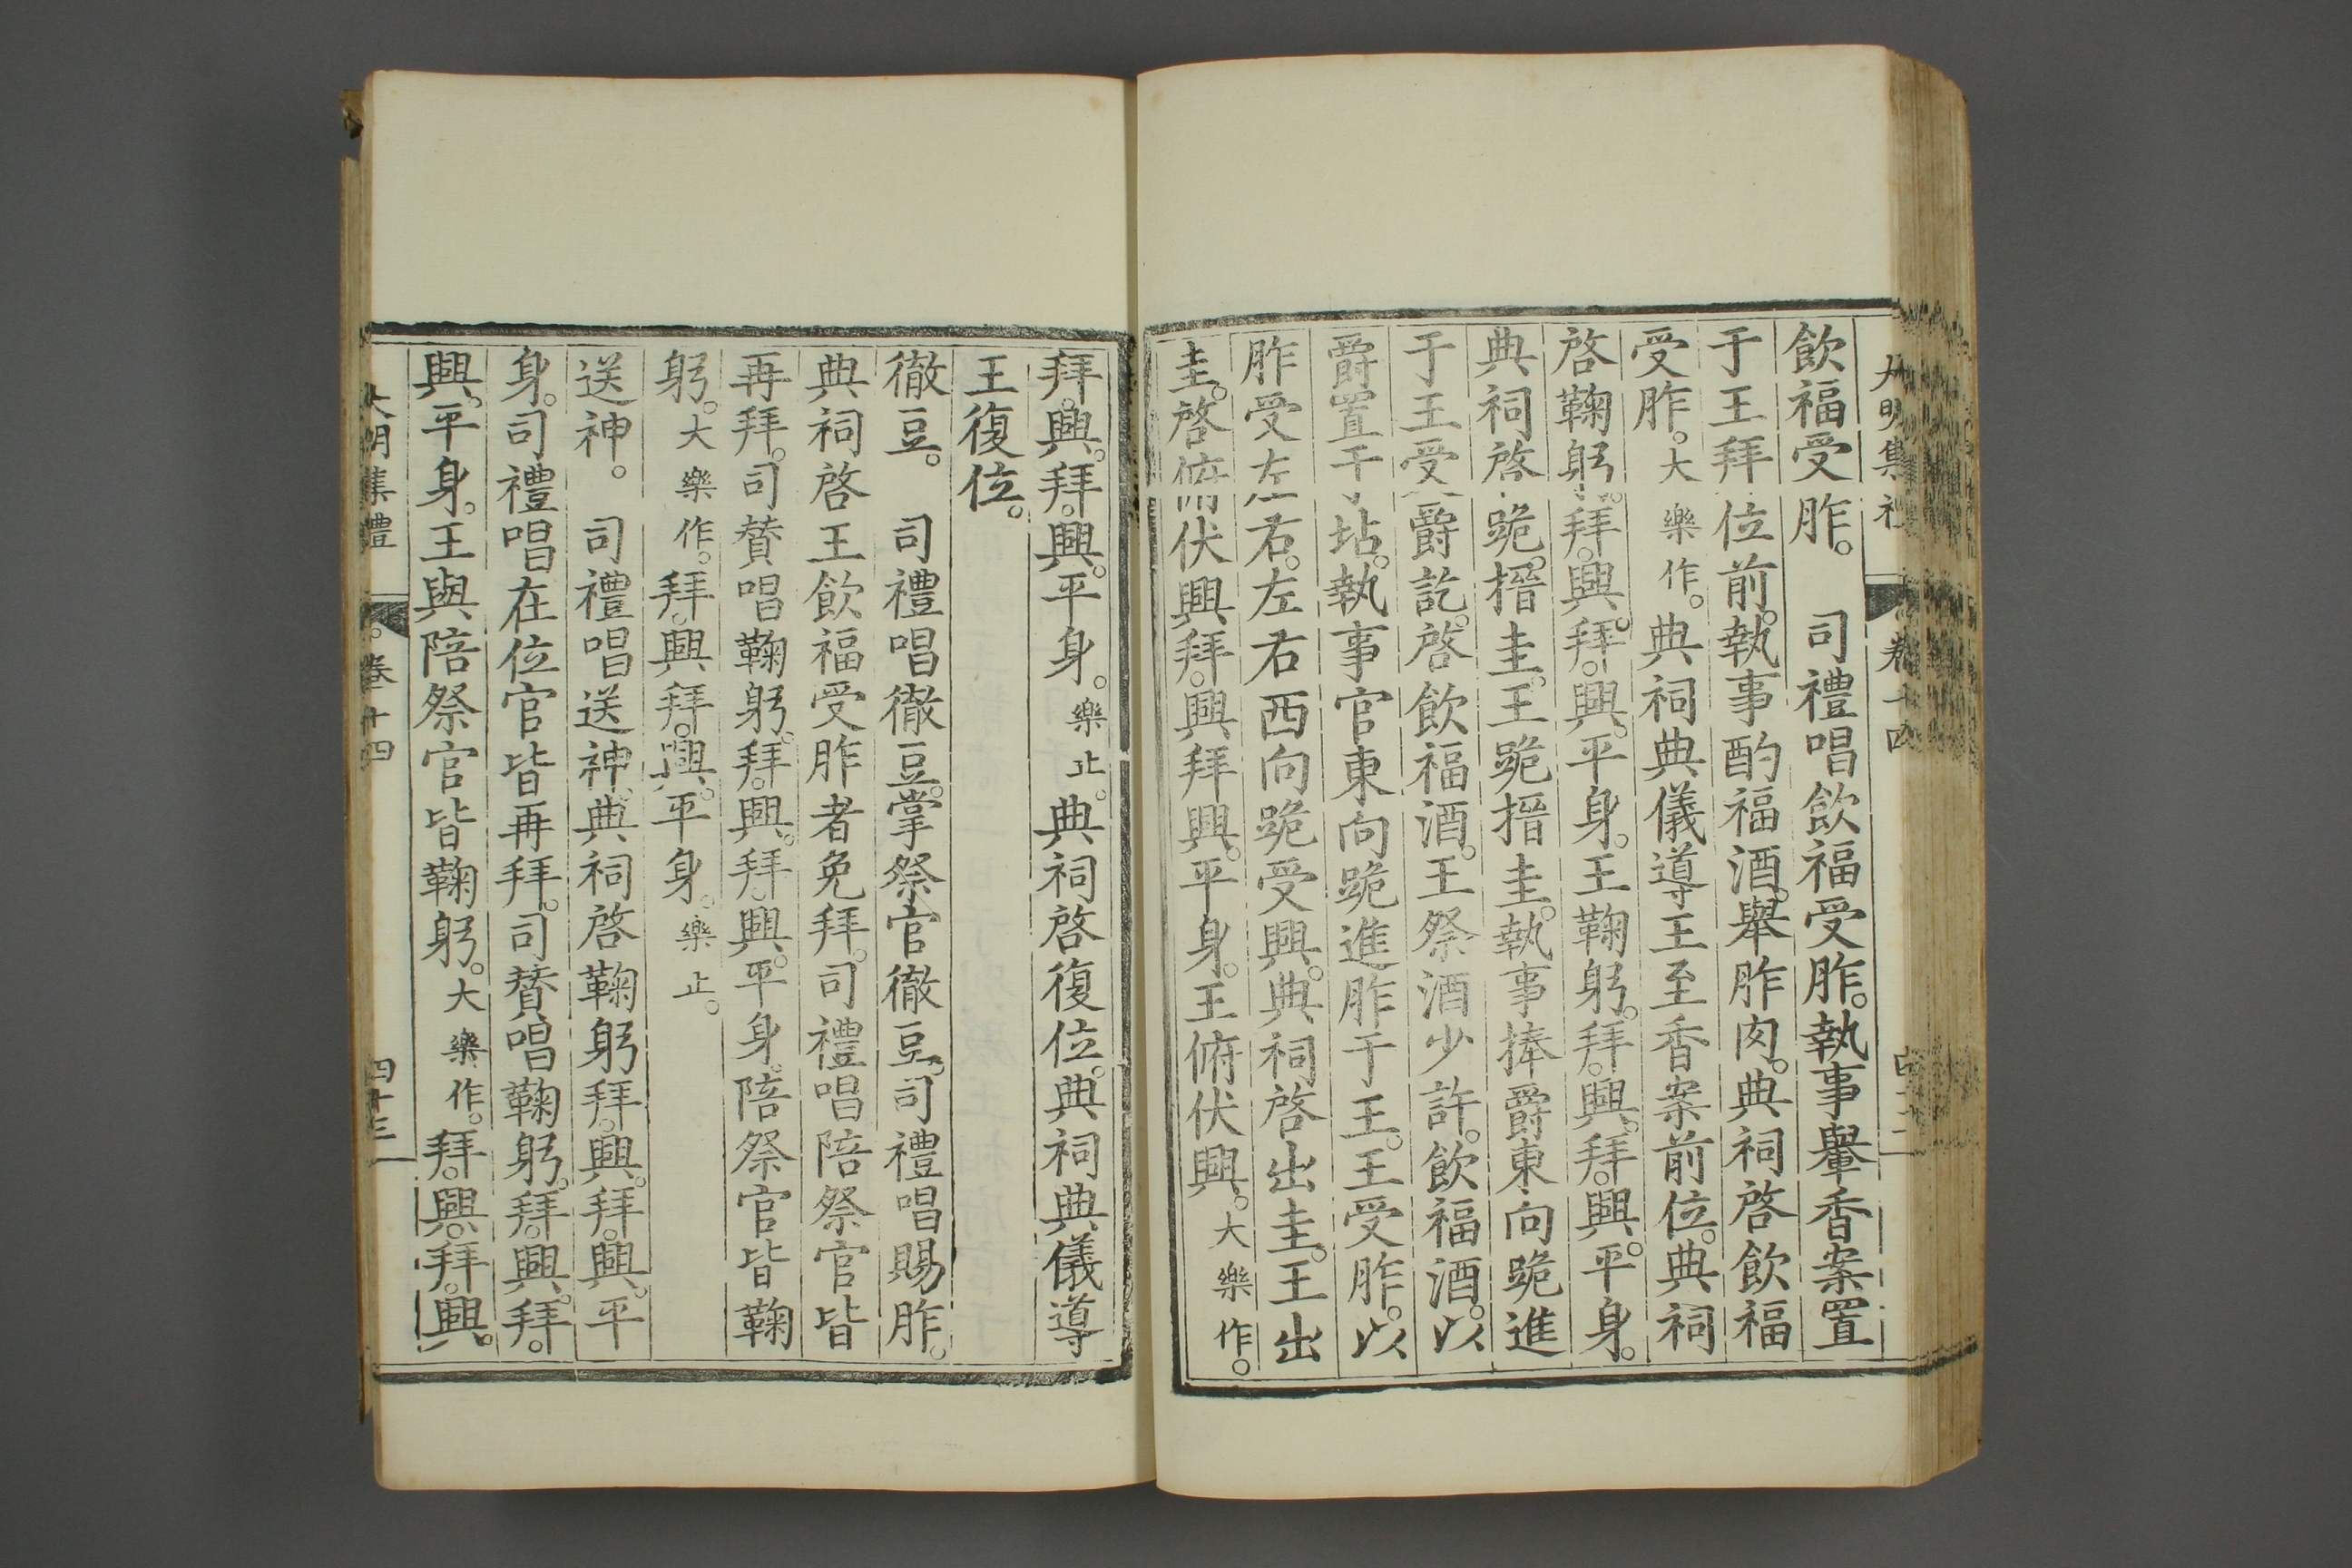 大明集禮
卷十四
飲福受胙。　司禮唱飲福受胙。執事舉香案置
于王拜位前。執事酌福酒。舉胙肉。典祠啓飲福
受胙。大樂作。典祠典儀導王至香案前位。典祠
啓鞠躬。拜。興。拜。興。平身。王鞠躬。拜。興。拜。興。平身。
典祠啓跪。搢圭。王跪搢圭。執事捧爵東向跪進
于王受爵訖。啓飲福酒。王祭酒少許。飲福酒。以
爵置于坫。執事官東向跪進胙于王。王受胙。以
胙受左右。左右西向跪受興。典祠啓出圭。王出
圭。啓俯伏興拜。興拜興。平身。王俯伏興。大樂作。
拜。興。拜。興。平身。樂止。典祠啓復位。典祠典儀導
王復位。
徹豆。　司禮唱徹豆。掌祭官徹豆。司禮唱賜胙。
典祠啓王飲福受胙者免拜。司禮唱陪祭官皆
再拜。司贊唱鞠躬。拜。興。拜。興。平身。陪祭官皆鞠
躬。大樂作。拜。興。拜。興。平身。樂止。
送神。　司禮唱送神。典祠啓鞠躬拜。興。拜。興。平
身。司禮唱在位官皆再拜。司贊唱鞠躬。拜。興。拜。
興。平身。王與陪祭官皆鞠躬。大樂作。拜。興。拜。興。
大明集禮
卷十四
四十三